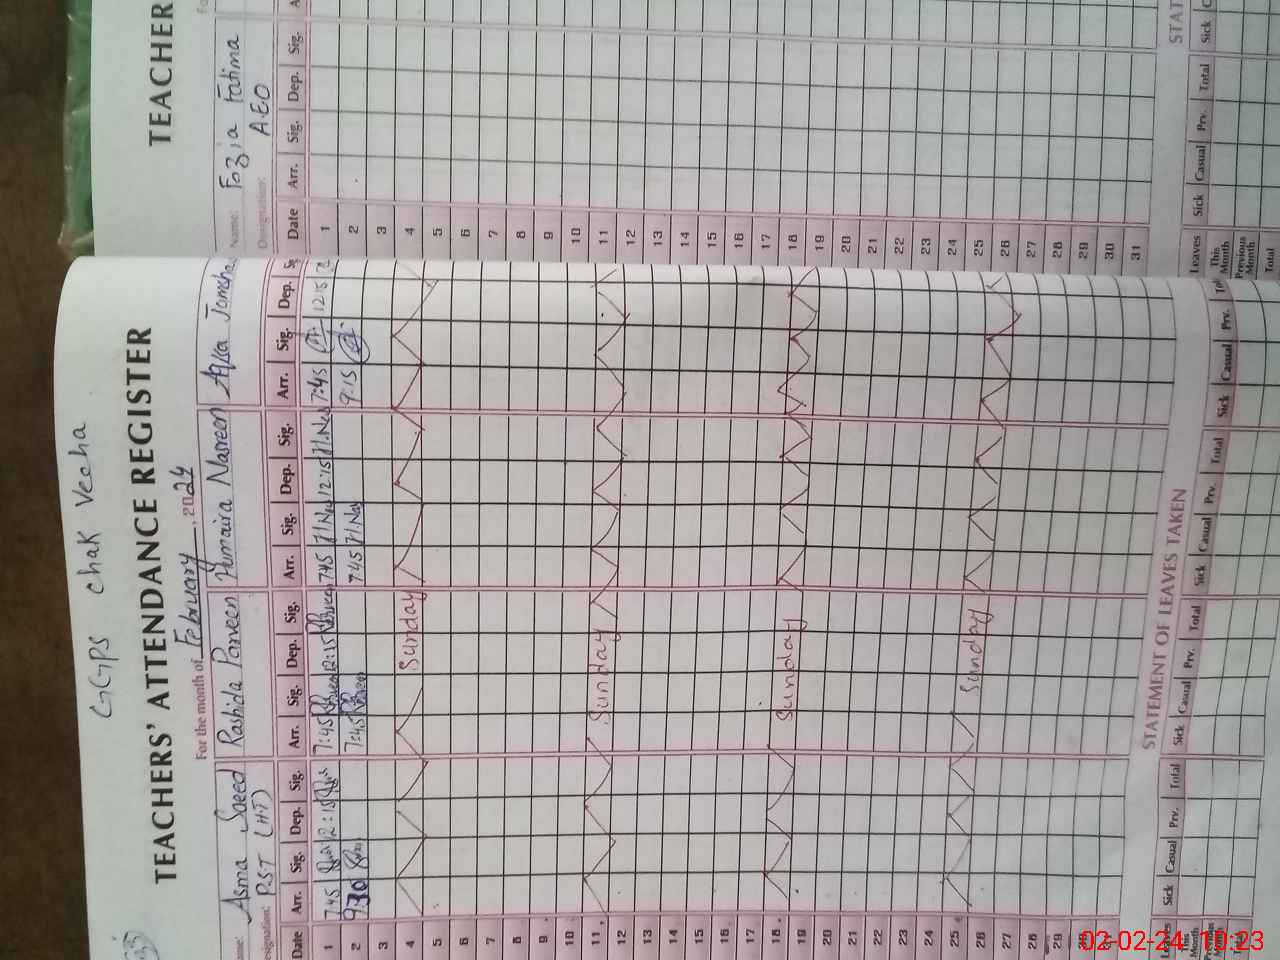 GGPS chak Veeha
TEACHERS' ATTENDANCE REGISTER
For the month of February, 2024
Name: Asma Saeed Rashida Parveen Humaira Nasreen
Designation: PST (H.T)
Date Arr. Sig. Dep. Sig. Arr. Sig. Dep. Sig. Arr. Sig. Dep. Sig. Arr. Sig. Dep.
1 7:45 12:15 7:45 12:15 7:45 H.Nas 12:15 H.Nas 7:45 12:15
2 9:30 7:45 7:45 H.Nas 9:15
3
4 Sunday
5
6
7
8
9
10
11 Sunday
12
13
14
15
16
17
18 Sunday
19
20
21
22
23
24
25 Sunday
26
27
28
29
30
31
STATEMENT OF LEAVES TAKEN
Leaves Sick Casual Prv. Total Sick Casual Prv. Total Sick Casual Prv. Total Sick Casual Prv.
This Month
Previous Month
TEACHER
Name: Fozia Fatima
Designation: A.E.O
Date Arr. Sig. Dep. Sig.
1
2
3
4
5
6
7
8
9
10
11
12
13
14
15
16
17
18
19
20
21
22
23
24
25
26
27
28
29
30
31
STAT
Leaves Sick Casual Prv. Total Sick
This Month
Previous Month
Total
02-02-24 10:23